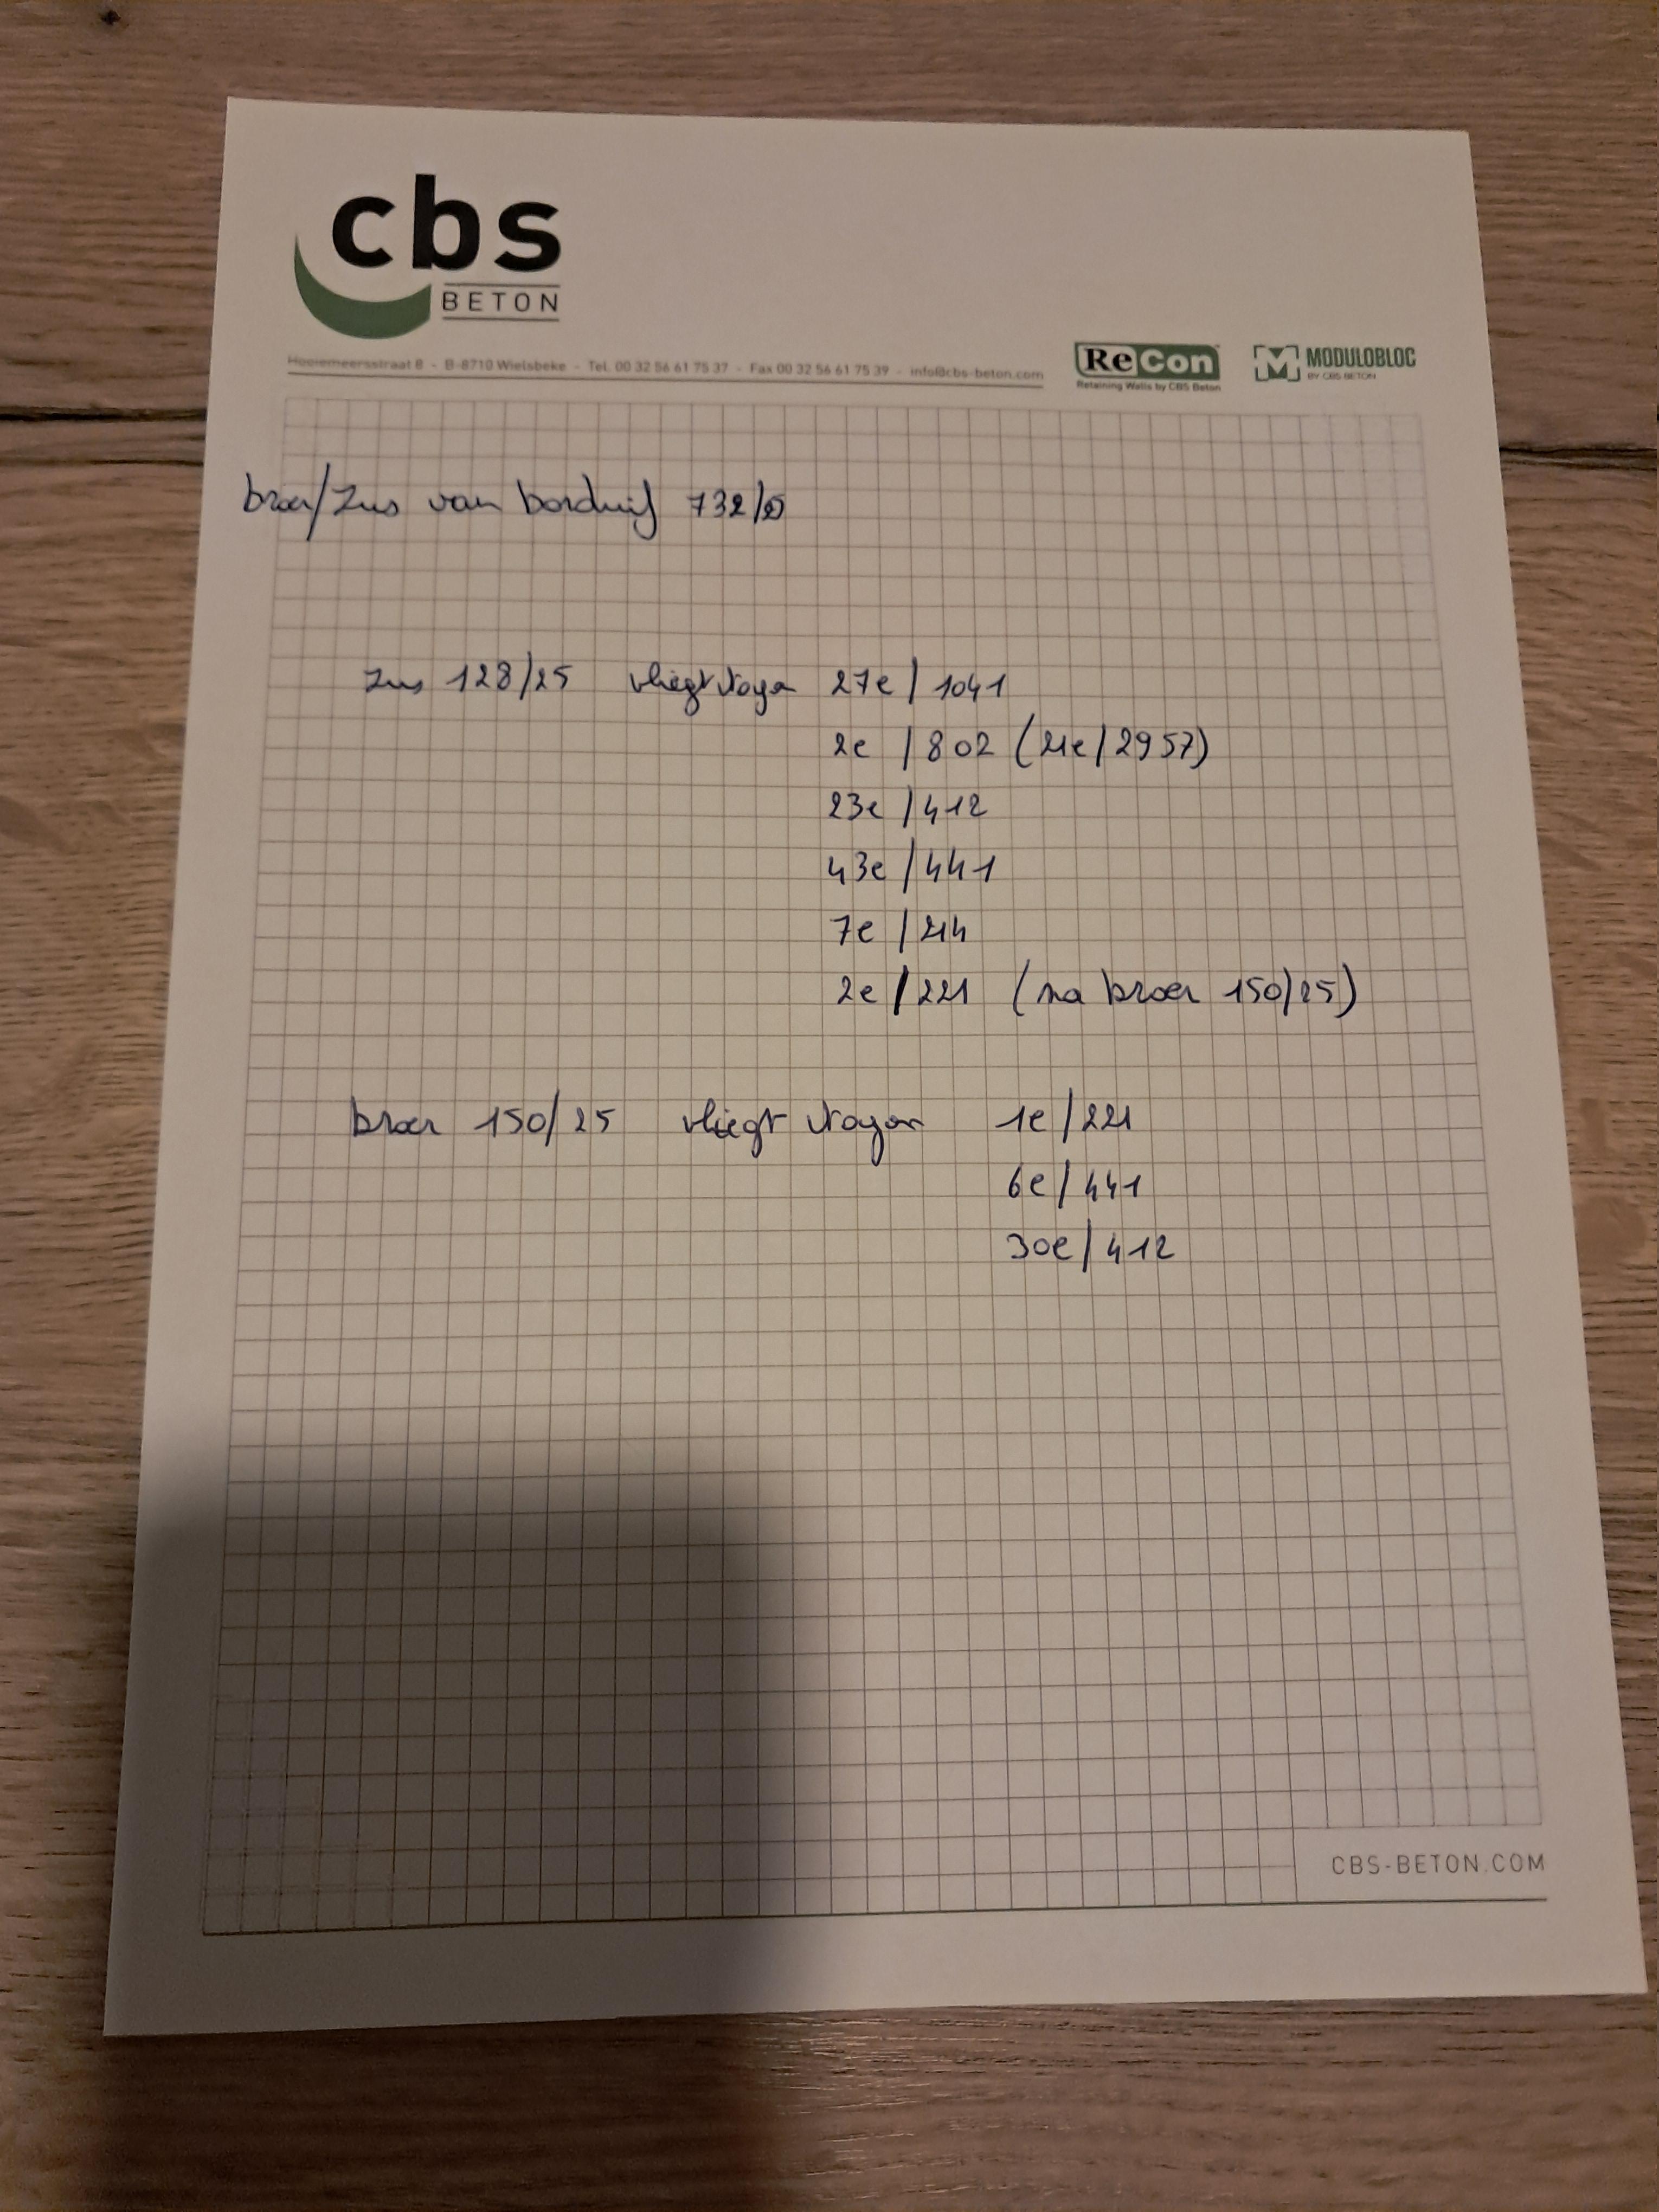 cbs
BETON
Hooiemeersstraat 8 - B-8710 Wielsbeke - Tel. 00 32 56 61 75 37 - Fax 00 32 56 61 75 39 - info@cbs-beton.com
ReCon
Retaining Walls by CBS Beton
MODULOBLOC
BY CBS BETON
broer/Zus van bonduif 732/
Zus 128/25 vliegt Noyon 27e / 1041
2e / 802 (21e / 2957)
23e / 412
43e / 441
7e / 214
2e / 221 (na broer 150/25)
broer 150/25 vliegt Noyon 1e / 221
6e / 441
30e / 412
CBS-BETON.COM